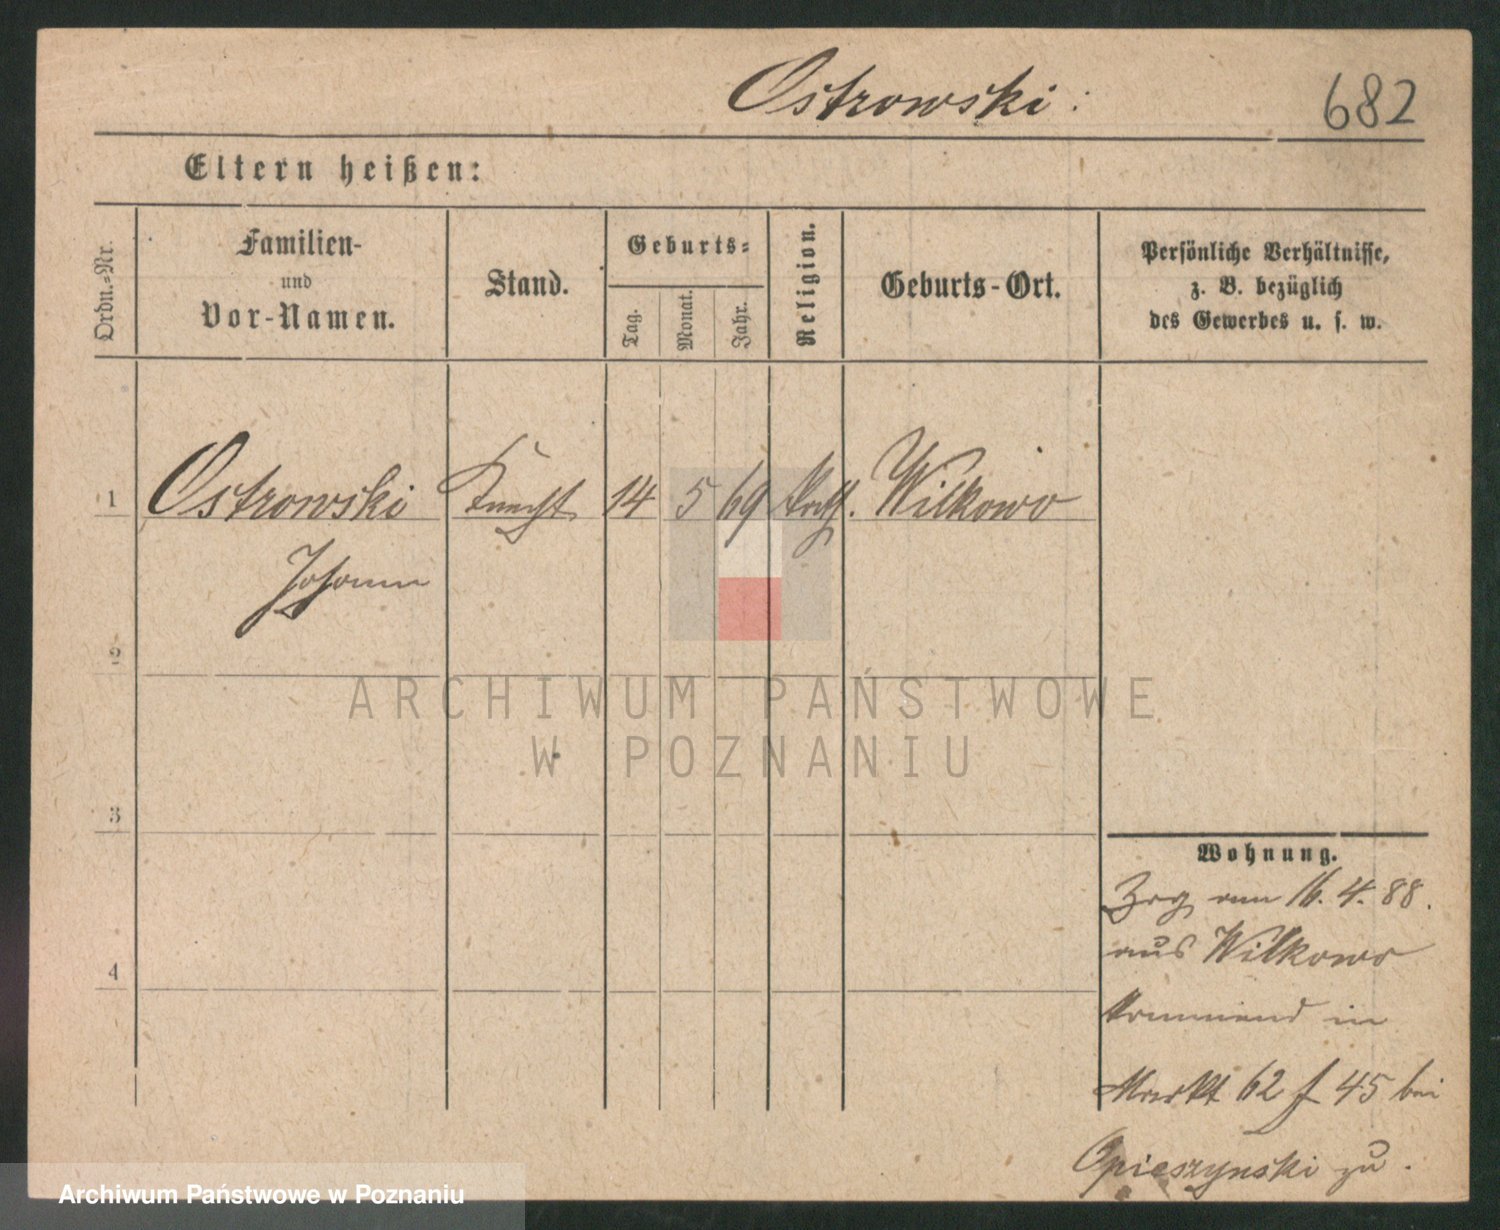 Ostrowski.
682
Eltern heißen:
Ordn.-Nr.
Familien-
und
Vor-Namen.
Stand.
Geburts-
Tag.
Monat.
Jahr.
Religion.
Geburts-Ort.
Persönliche Verhältnisse,
z. B. bezüglich
des Gewerbes u. s. w.
1 Ostrowski Knecht 14 5 69 kath. Wilkowo
Johann
2
3
4
Wohnung.
Zog am 16.4.88.
aus Wilkowo
kommend in
Markt 62 f 45 bei
Opieszynski zu.
ARCHIWUM PAŃSTWOWE
W POZNANIU
Archiwum Państwowe w Poznaniu